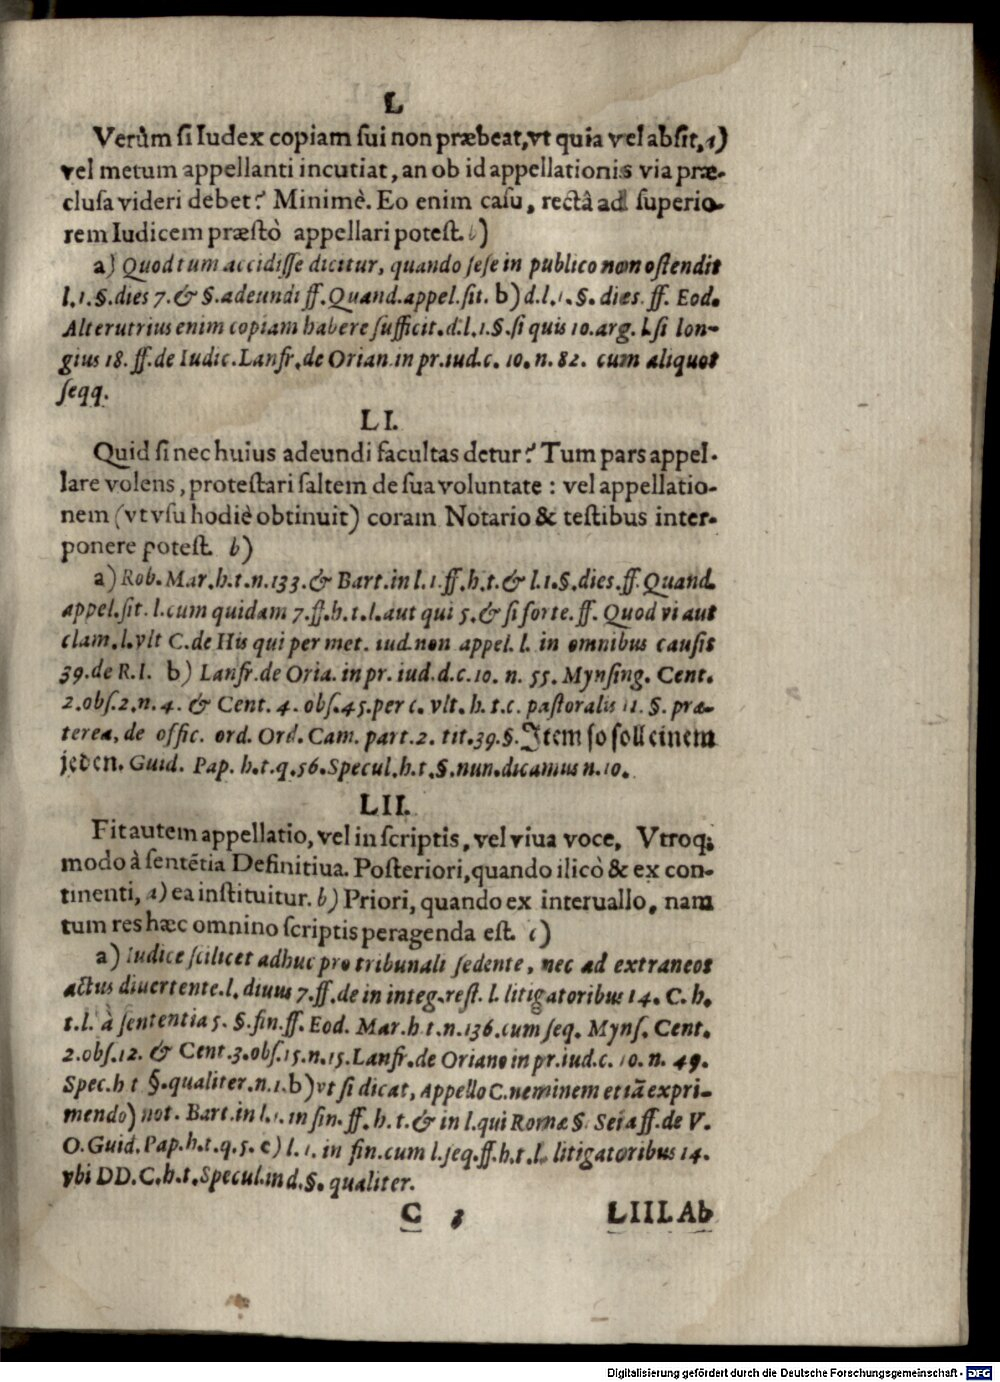 L
Verùm ſi Iudex copiam ſui non præbeat, vt quia vel abſit, a)
vel metum appellanti incutiat, an ob id appellationis via præ-
cluſa videri debet? Minimè. Eo enim caſu, rectâ ad ſuperio-
rem Iudicem præſtò appellari poteſt. b)
a) Quod tum accidiſſe dicitur, quando ſeſe in publico non oſtendit
l. 1. §. dies 7. & §. adeundi ff. Quand. appel. ſit. b) d. l. 1. §. dies. ff. Eod.
Alterutrius enim copiam habere ſufficit. d. l. 1. §. ſi quis 10. arg. l. ſi lon-
gius 18. ff. de Iudic. Lanfr. de Orian. in pr. iud. c. 10. n. 82. cum aliquot
ſeqq.
LI.
Quid ſi nec huius adeundi facultas detur? Tum pars appel-
lare volens, proteſtari ſaltem de ſua voluntate : vel appellatio-
nem (vt vſu hodiè obtinuit) coram Notario & teſtibus inter-
ponere poteſt. b)
a) Rob. Mar. h. t. n. 133. & Bart. in l. 1. ff. h. t. & l. 1. §. dies. ff. Quand.
appel. ſit. l. cum quidam 7. ff. h. t. l. aut qui 5. & ſi forte. ff. Quod vi aut
clam. l. vlt C. de His qui per met. iud. non appel. l. in omnibus cauſis
39. de R. I. b) Lanfr. de Oria. in pr. iud. d. c. 10. n. 55. Mynſing. Cent.
2. obſ. 2. n. 4. & Cent. 4. obſ. 45. per c. vlt. h. t. c. paſtoralis 11. §. præ-
terea, de offic. ord. Ord. Cam. part. 2. tit. 39. §. Item ſo ſoll einem
jeden. Guid. Pap. h. t. q. 56. Specul. h. t. §. nun. dicamus n. 10.
LII.
Fit autem appellatio, vel in ſcriptis, vel viua voce, Vtroq;
modo à ſentētia Definitiua. Poſteriori, quando ilicò & ex con-
tinenti, a) ea inſtituitur. b) Priori, quando ex interuallo, nam
tum res hæc omnino ſcriptis peragenda eſt. c)
a) Iudice ſcilicet adhuc pro tribunali ſedente, nec ad extraneos
actus diuertente. l. diuus 7. ff. de in integ. reſt. l. litigatoribus 14. C. h.
t. l. à ſententia 5. §. fin. ff. Eod. Mar. h t. n. 136. cum ſeq. Mynſ. Cent.
2. obſ. 12. & Cent. 3. obſ. 15. n. 15. Lanfr. de Oriano in pr. iud. c. 10. n. 49.
Spec. h t §. qualiter. n. 1. b) vt ſi dicat, Appello C. neminem etiā expri-
mendo) not. Bart. in l. 1. in fin. ff. h. t. & in l. qui Romæ §. Seia ff. de V.
O. Guid. Pap. h. t. q. 5. c) l. 1. in fin. cum l. ſeq. ff. h. t. l. litigatoribus 14.
vbi DD. C. h. t. Specul. in d. §. qualiter.
C 3 LIII. Ab
Digitalisierung gefördert durch die Deutsche Forschungsgemeinschaft - DFG